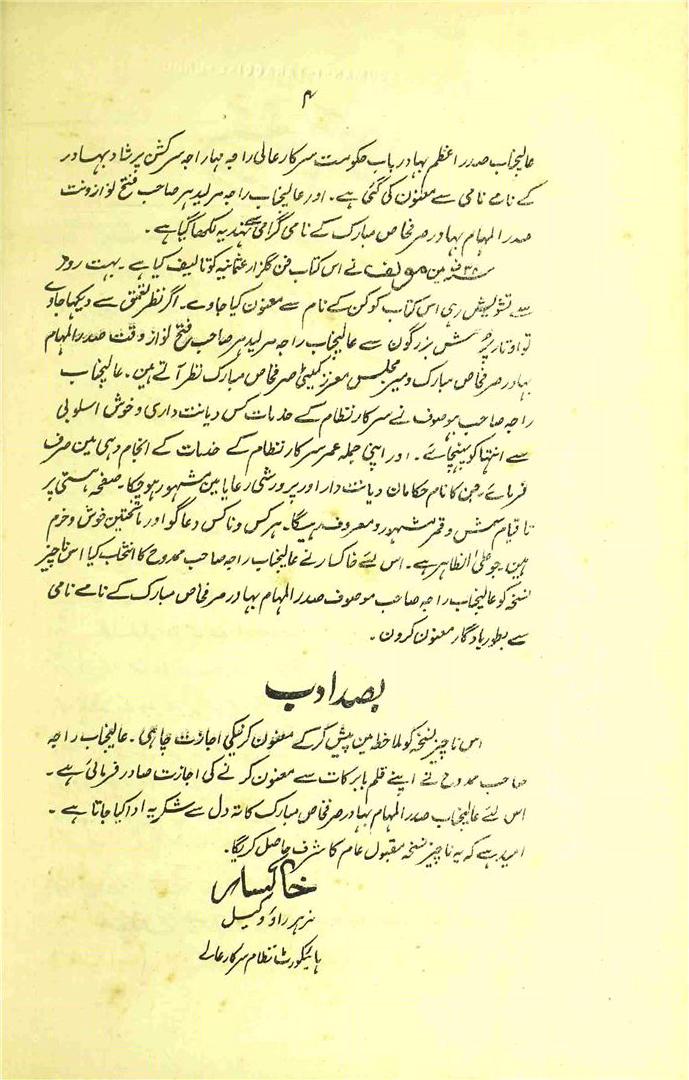 ۴
عالیجناب صدر اعظم بہادر باب حکومت سرکار عالی راجہ مہاراجہ سرکشن پرشاد بہادر
کے نامے نامی سے معنون کی گئی ہے۔ اور عالیجناب راجہ سرلیدہر صاحب فتح نواز ونت
صدر المہام بہادر صرفخاص مبارک کے نامی گرامی سے تہندیہ لکھا گیا ہے۔
مین مولف نے اس کتاب فن گلزار عثمانیہ کو تالیف کیا ہے۔ بہت روز
سے تشویش رہی اس کتاب کو کن کے نام سے معنون کیا جاوے۔ اگر نظر تعمق سے دیکھا جاوے
تو بزرگون سے عالیجناب راجہ سرلیدہر صاحب فتح نواز وقت صدر المہام
بہادر صرفخاص مبارک و میر مجلس معزز کمیٹی صرفخاص مبارک نظر آتے ہین۔ عالیجناب
راجہ صاحب موصوف نے سرکار نظام کے خدمات کس دیانت داری و خوش اسلوبی
سے انتہا کو پہنچائے۔ اور اپنی جملہ عمر سرکار نظام کے خدمات کے انجام دہی مین صرف
فرمائے جن کا نام حکامان دیانت دار اور پرورشی رعایا مین مشہور ہو چکا۔ صفحہ ہستی پر
تا قیام شمس و قمر مشہور و معروف رہیگا۔ ہر کس و ناکس دعا گو اور ماتحتین خوش و خرم
ہین۔ جو علیٰ الظاہر ہے۔ اس لئے خاکسار نے عالیجناب راجہ صاحب ممدوح کا انتخاب کیا اس ناچیز
نسخہ کو عالیجناب راجہ صاحب موصوف صدر المہام بہادر صرفخاص مبارک کے نامے نامی
سے بطور یادگار معنون کرون۔
بصد ادب
اس ناچیز نسخہ کو ملاحظہ مین پیش کر کے معنون کرنیکی اجازت چاہی۔ عالیجناب راجہ
صاحب ممدوح نے اپنے قلم بابرکات سے معنون کرنے کی اجازت صادر فرمائی ہے۔
اس لئے عالیجناب صدر المہام بہادر صرفخاص مبارک کا تہ دل سے شکریہ ادا کیا جاتا ہے۔
امید ہے کہ یہ ناچیز نسخہ مقبول عام کا شرف حاصل کریگا۔
خاکسار
نرہر راؤ وکیل
ہائیکورٹ نظام سرکار عالے